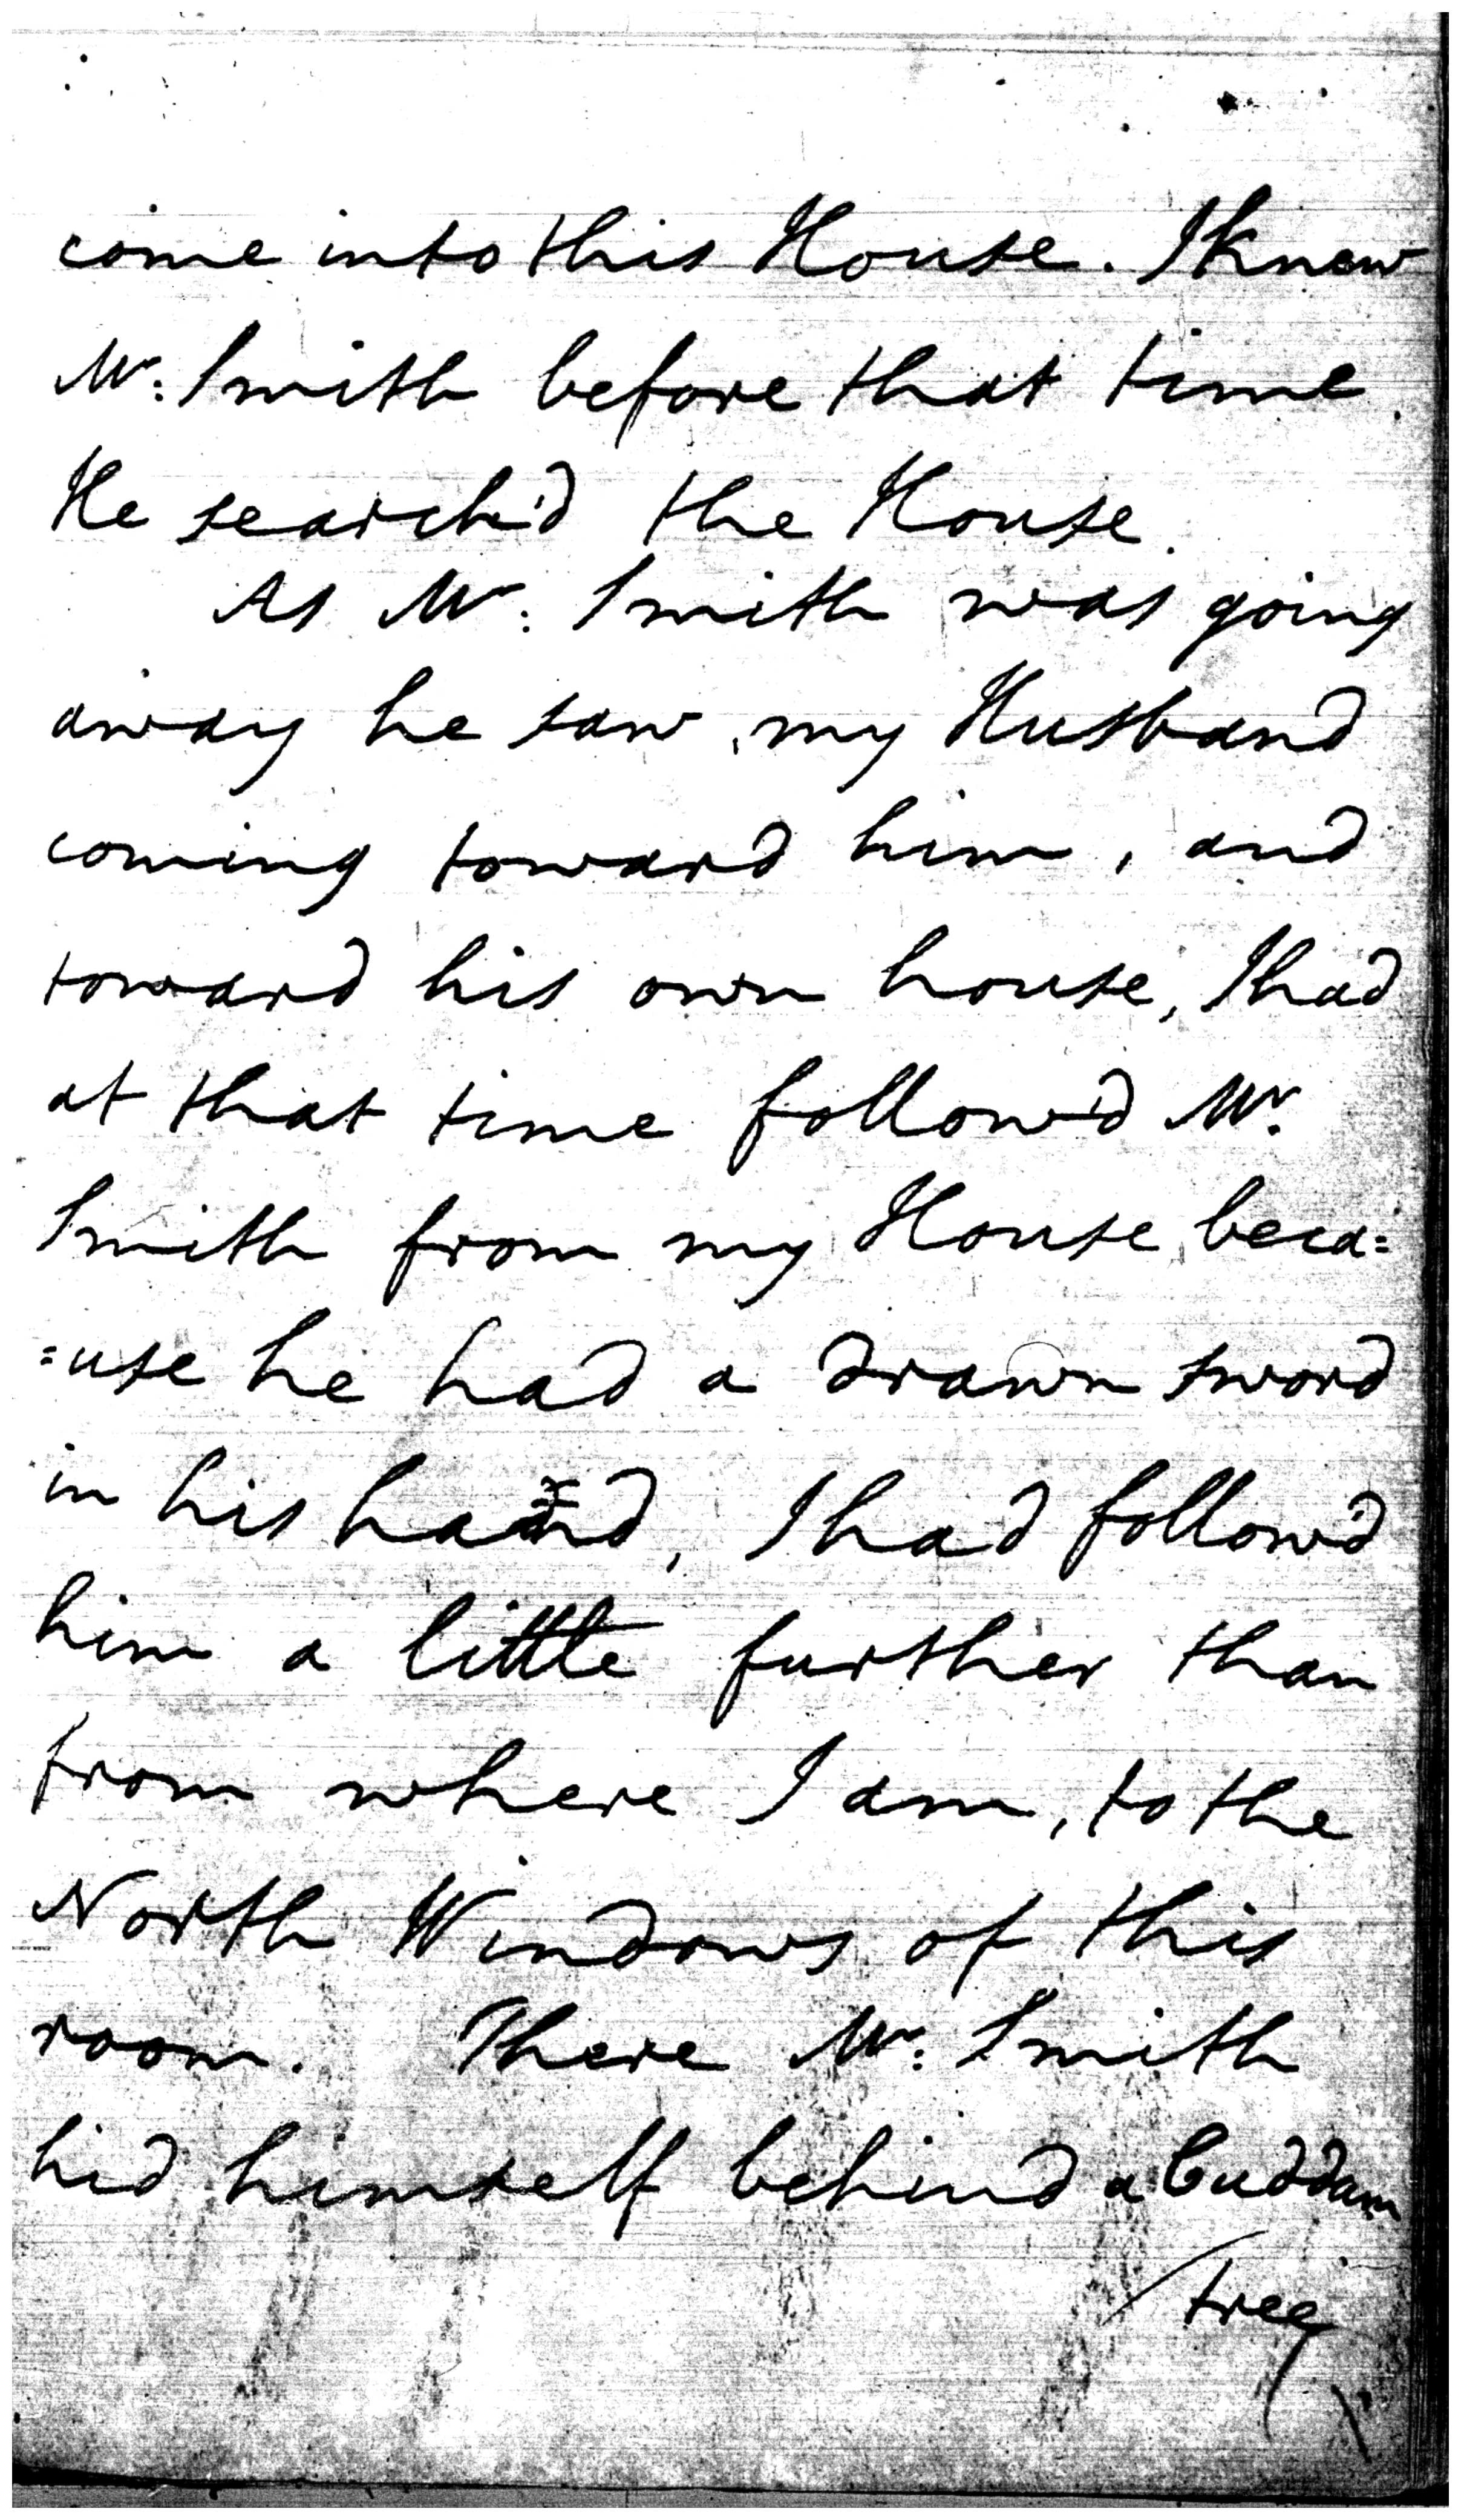 come into this House. I knew
Mr: Smith before that time
He search'd the House.
As Mr: Smith was going
away he saw my Husband
coming toward him, and
toward his own house, I had
at that time follow'd Mr.
Smith from my House beca=
=use he had a drawn sword
in his hand, I had follow'd
him a little further than
from where I am, to the
North Windows of this
room. There Mr: Smith
hid himself behind a Cuddam
tree